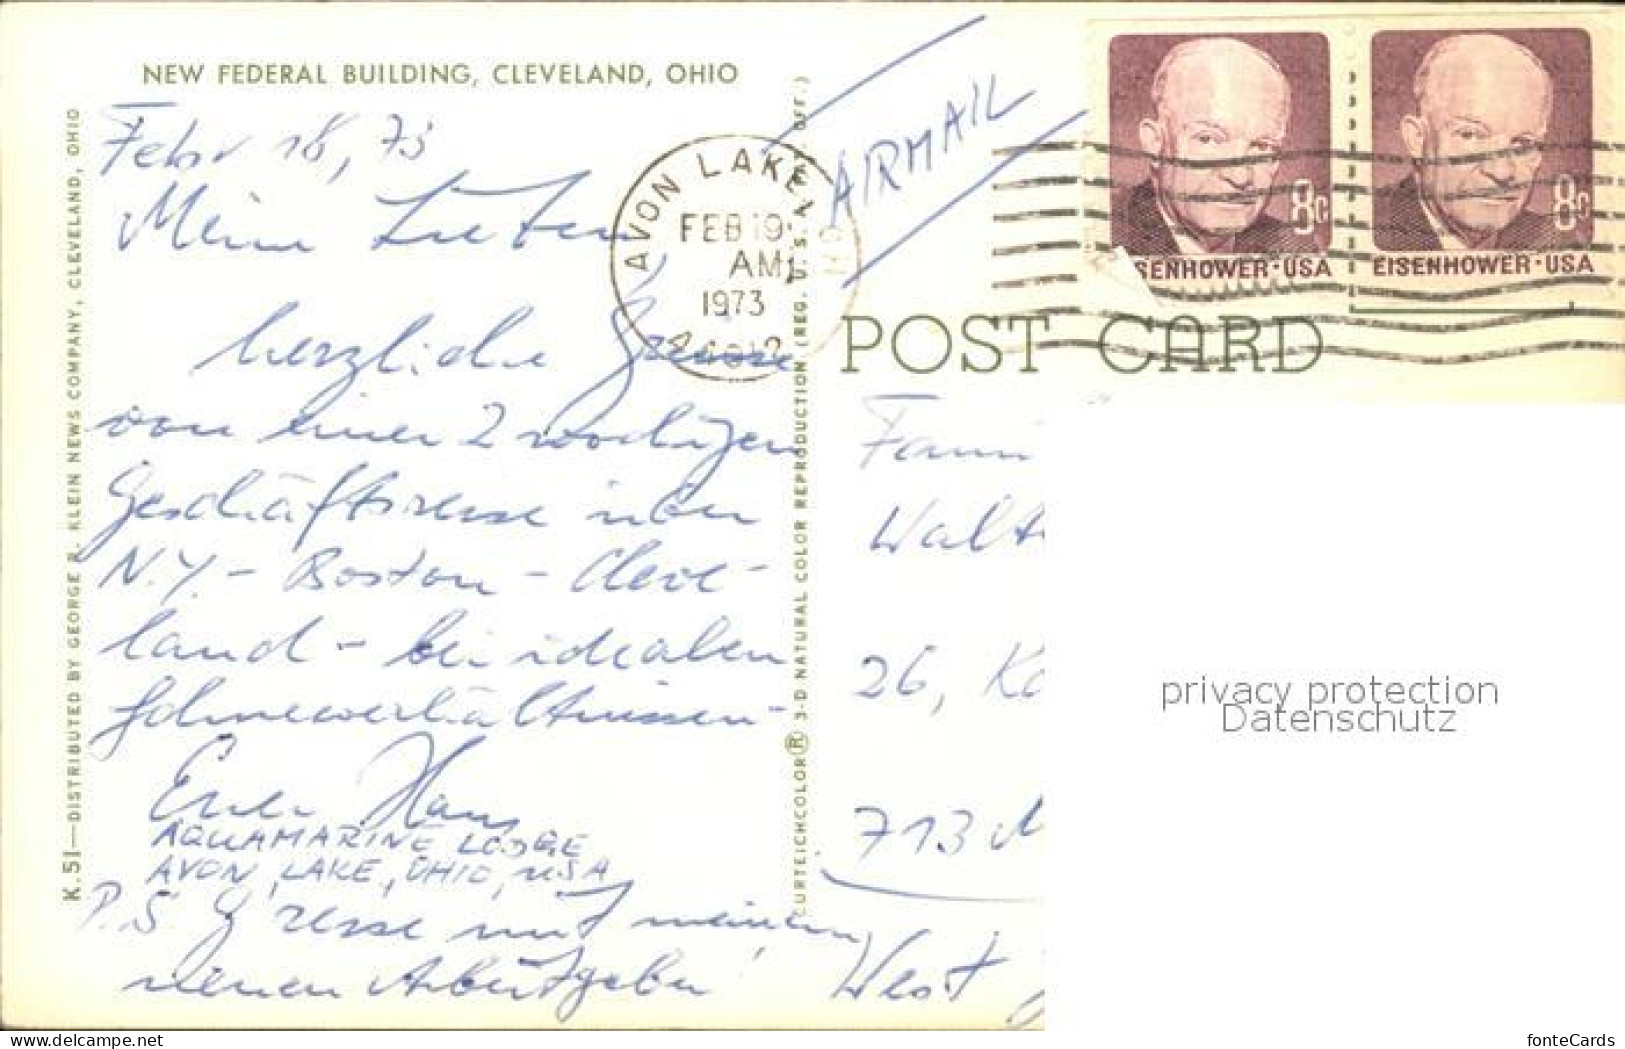 NEW FEDERAL BUILDING, CLEVELAND, OHIO
Febr 18, 73
Meine Lieben
herzliche Grüsse
von einer 2 wochigen
Geschäftsreise über
N.Y. - Boston - Cleve-
land - bei idealen
Schneeverhältnissen -
Euer Hans
AQUAMARINE LODGE
AVON LAKE, OHIO, USA
P.S. Grüsse mit meinem
neuen Arbeitgeber!
K.51—DISTRIBUTED BY GEORGE R. KLEIN NEWS COMPANY, CLEVELAND, OHIO
CURTEICHCOLOR® 3-D NATURAL COLOR REPRODUCTION (REG. U.S. PAT. OFF.)
AVON LAKE, OH
FEB 19
AM
1973
44012
AIRMAIL
8c
SENHOWER·USA
8c
EISENHOWER·USA
POST CARD
Fam
Walt
26, Ko
713
West
privacy protection
Datenschutz
www.delcampe.net
fonteCards